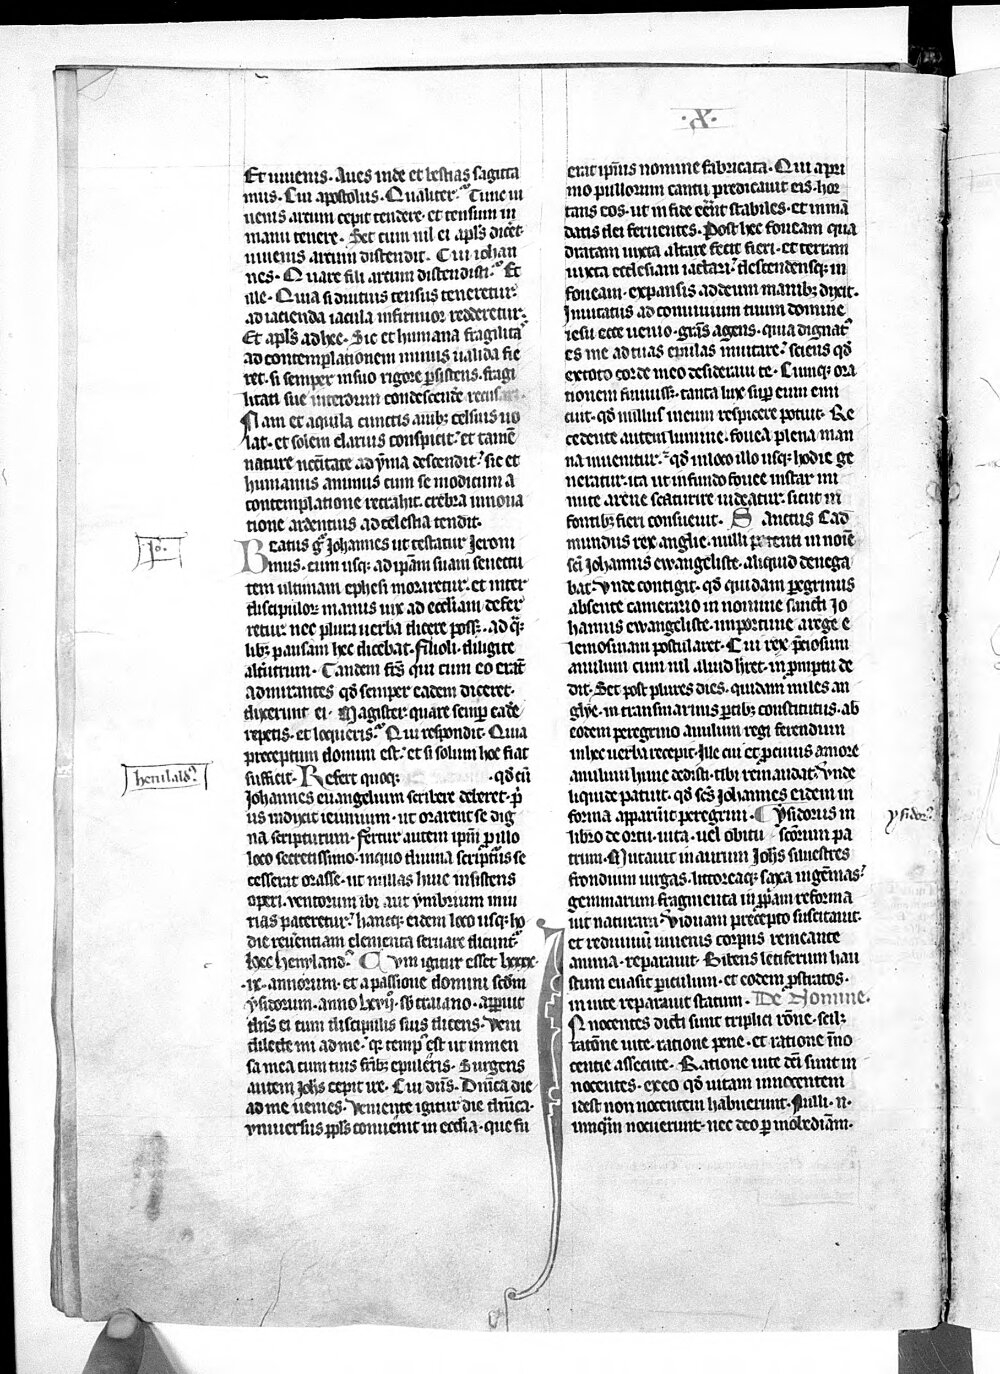 ·X·
Et iuuenis. Aues inde et bestias sagitta
mus. Cui apostolus. Qualiter? Tunc iu
uenis arcum cepit tendere. et tensum in
manu tenere. Set cum nil ei apls diceret
iuuenis arcum distendit. Cui iohan
nes. Quare fili arcum distendisti? Et
ille. Quia si diutius tensus teneretur:
ad iacienda iacula infirmior redderetur.
Et apls ad hec. Sic et humana fragilitas
ad contemplationem minus ualida fie
ret. si semper in suo rigore psistens. fragi
litati sue interdum condescendere recusaret.
Nam et aquila cunctis auibꝫ celsius uo
lat. et solem clarius conspicit: et tamē
nature necītate ad yma descendit: sic et
humanus animus cum se modicum a
contemplatione retrahit. crebra innoua
tione ardentius ad celestia tendit.
io.
Beatus g̊ Johannes ut testatur Jeroni
mus. cum usqꝫ ad ipām suam senectu
tem ultimam ephesi moraretur. et inter
discipulorꝫ manus uix ad eccliam defer
retur. nec plura uerba dicere posset. ad q̄s
libꝫ pausam hec dicebat. filioli. diligite
alt̄utrum. Tandem frēs qui cum eo erāt
admirantes qd̄ semper eadem diceret.
dixerunt ei. Magister quare semp eadē
repetis. et loqueris? Qui respondit. Quia
preceptum domini est: et si solum hoc fiat
henilald9
sufficit. Refert quoqꝫ qd̄ cū
Johannes euangelium scribere deberet. p̄
us indixit ieiunium. ut orarent se dig
na scripturum. Fertur autem ip̄m p illo
loco secretissimo. in quo diuina scripturus se
cesserat orasse. ut nullas huic insistens
operi. uentorum ibi aut ymbrium iniu
rias pateretur: hancqꝫ eidem loco usqꝫ ho
die reuerentiam elementa seruare dicunt̄.
hec henyland9. Cum igitur esset lxxxx
ix. annorum. et a passione domini secdm
ysidorum. anno lxvij. sb traiano. apparuit
dn̄s ei cum discipulis suis dicens. Veni
dilecte mi ad me. qꝛ temp9 est ut in men
sa mea cum tuis fribꝫ epuleris. Surgens
autem Johs cepit ire. Cui dn̄s. Dn̄ica die
ad me uenies. Veniente igitur die dn̄ica.
vniuersus ppls conuenit in ecclia. que fu
erat ipsius nomine fabricata. Qui a pri
mo pullorum cantu predicauit eis. hor
tans eos. ut in fide eēnt stabiles. et in mā
datis dei feruentes. Post hec foueam qua
dratam iuxta altare fecit fieri. et terram
iuxta ecclesiam iactari: descendensqꝫ in
foueam. expansis ad deum manibꝫ dixit.
Inuitatus ad conuiuium tuum domine
iesu ecce uenio. gras agens. quia dignat9
es me ad tuas epulas inuitare: sciens qd̄
ex toto corde meo desideraui te. Cumqꝫ ora
tionem finiuisset. tanta lux sup eum emi
cuit. qd̄ nullus in eum respicere potuit. Re
cedente autem lumine. fouea plena man
na inuenitur: qd̄ in loco illo usqꝫ hodie ge
neratur. ita ut in fundo fouee instar mi
nute arene scaturire uideatur. sicut in
fontibꝫ fieri consueuit. Sanctus Ead
mundus rex anglie. nulli petenti in noīe
sci Johannis ewangeliste. aliquid denega
bat. Vnde contigit. qd̄ quidam peregrinus
absente camerario in nomine sancti Jo
hannis ewangeliste. inportune a rege e
lemosinam postularet. Cui rex p̄ciosum
anulum cum nil aliud hret. in promptu de
dit. Set post plures dies. quidam miles an
glye. in transmarinis ptibꝫ constitutus. ab
eodem peregrino anulum regi ferendum
in hec uerba recepit. Ille cui et p cuius amore
anulum hunc dedisti. tibi remandat. Vnde
liquide patuit. qd̄ scs Johannes eidem in
forma apparuit peregrini. Ysidorus in
ysidor9
libro de ortu. uita. uel obitu scōrum pa
trum. Mutauit in aurum Johs siluestres
frondium uirgas. littoreaqꝫ saxa in gemmas:
gemmarum fragmenta in ppriam reforma
uit naturam: Viduam precepto suscitauit.
et rediuiuū iuuenis corpus remeante
anima. reparauit. Bibens letiferum hau
stum euasit piculum. et eodem pstratos.
in uite reparauit statum. De Nomine.
Innocentes dicti sunt triplici rōne. scilꝫ
ratōne uite. ratione pene. et ratione īno
centie assecute. Ratione uite dcī sunt in
nocentes. ex eo qd̄ uitam innocentem
idest non nocentem habuerunt. Nulli .n.
umq̄m nocuerunt. nec deo p inobediām.